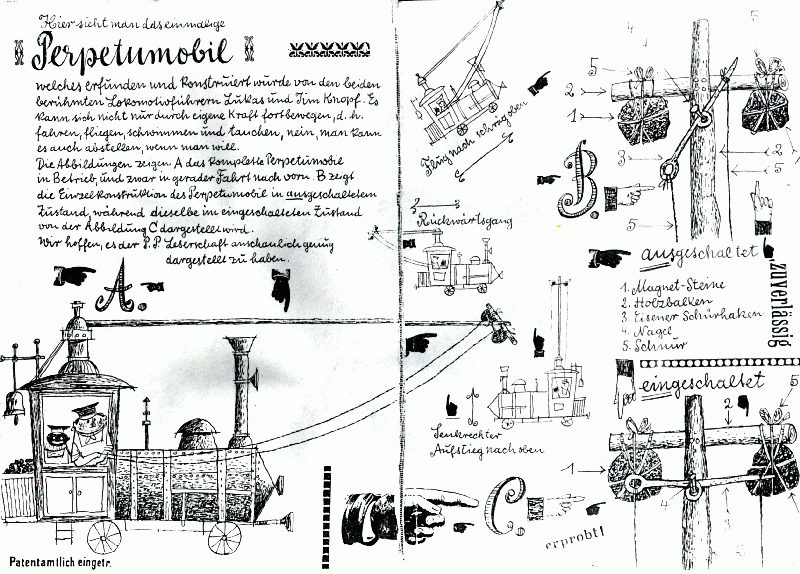 Hier sieht man das einmalige
Perpetumobil
welches erfunden und konstruiert wurde von den beiden
berühmten Lokomotivführern Lukas und Jim Knopf. Es
kann sich nicht nur durch eigene Kraft fortbewegen, d.h.
fahren, fliegen, schwimmen und tauchen, nein, man kann
es auch abstellen, wenn man will.
Die Abbildungen zeigen A das komplette Perpetumobil
in Betrieb, und zwar in gerader Fahrt nach vorn. B zeigt
die Einzelkonstruktion des Perpetumobil in ausgeschaltetem
Zustand, während dieselbe im eingeschalteten Zustand
von der Abbildung C dargestellt wird.
Wir hoffen, es der P.P. Leserschaft anschaulich genug
dargestellt zu haben.
A.
Patentamtlich eingetr.
Flug nach schräg oben
Rückwärtsgang
Senkrechter
Aufstieg nach oben
4
5
5
2
1
1
3
2
5
5
B.
ausgeschaltet
zuverlässig
1. Magnet-Steine
2. Holzbalken
3 Eisener Schürhaken
4. Nagel
5. Schnur
eingeschaltet
5
2
1
4
3
1
C.
erprobt!